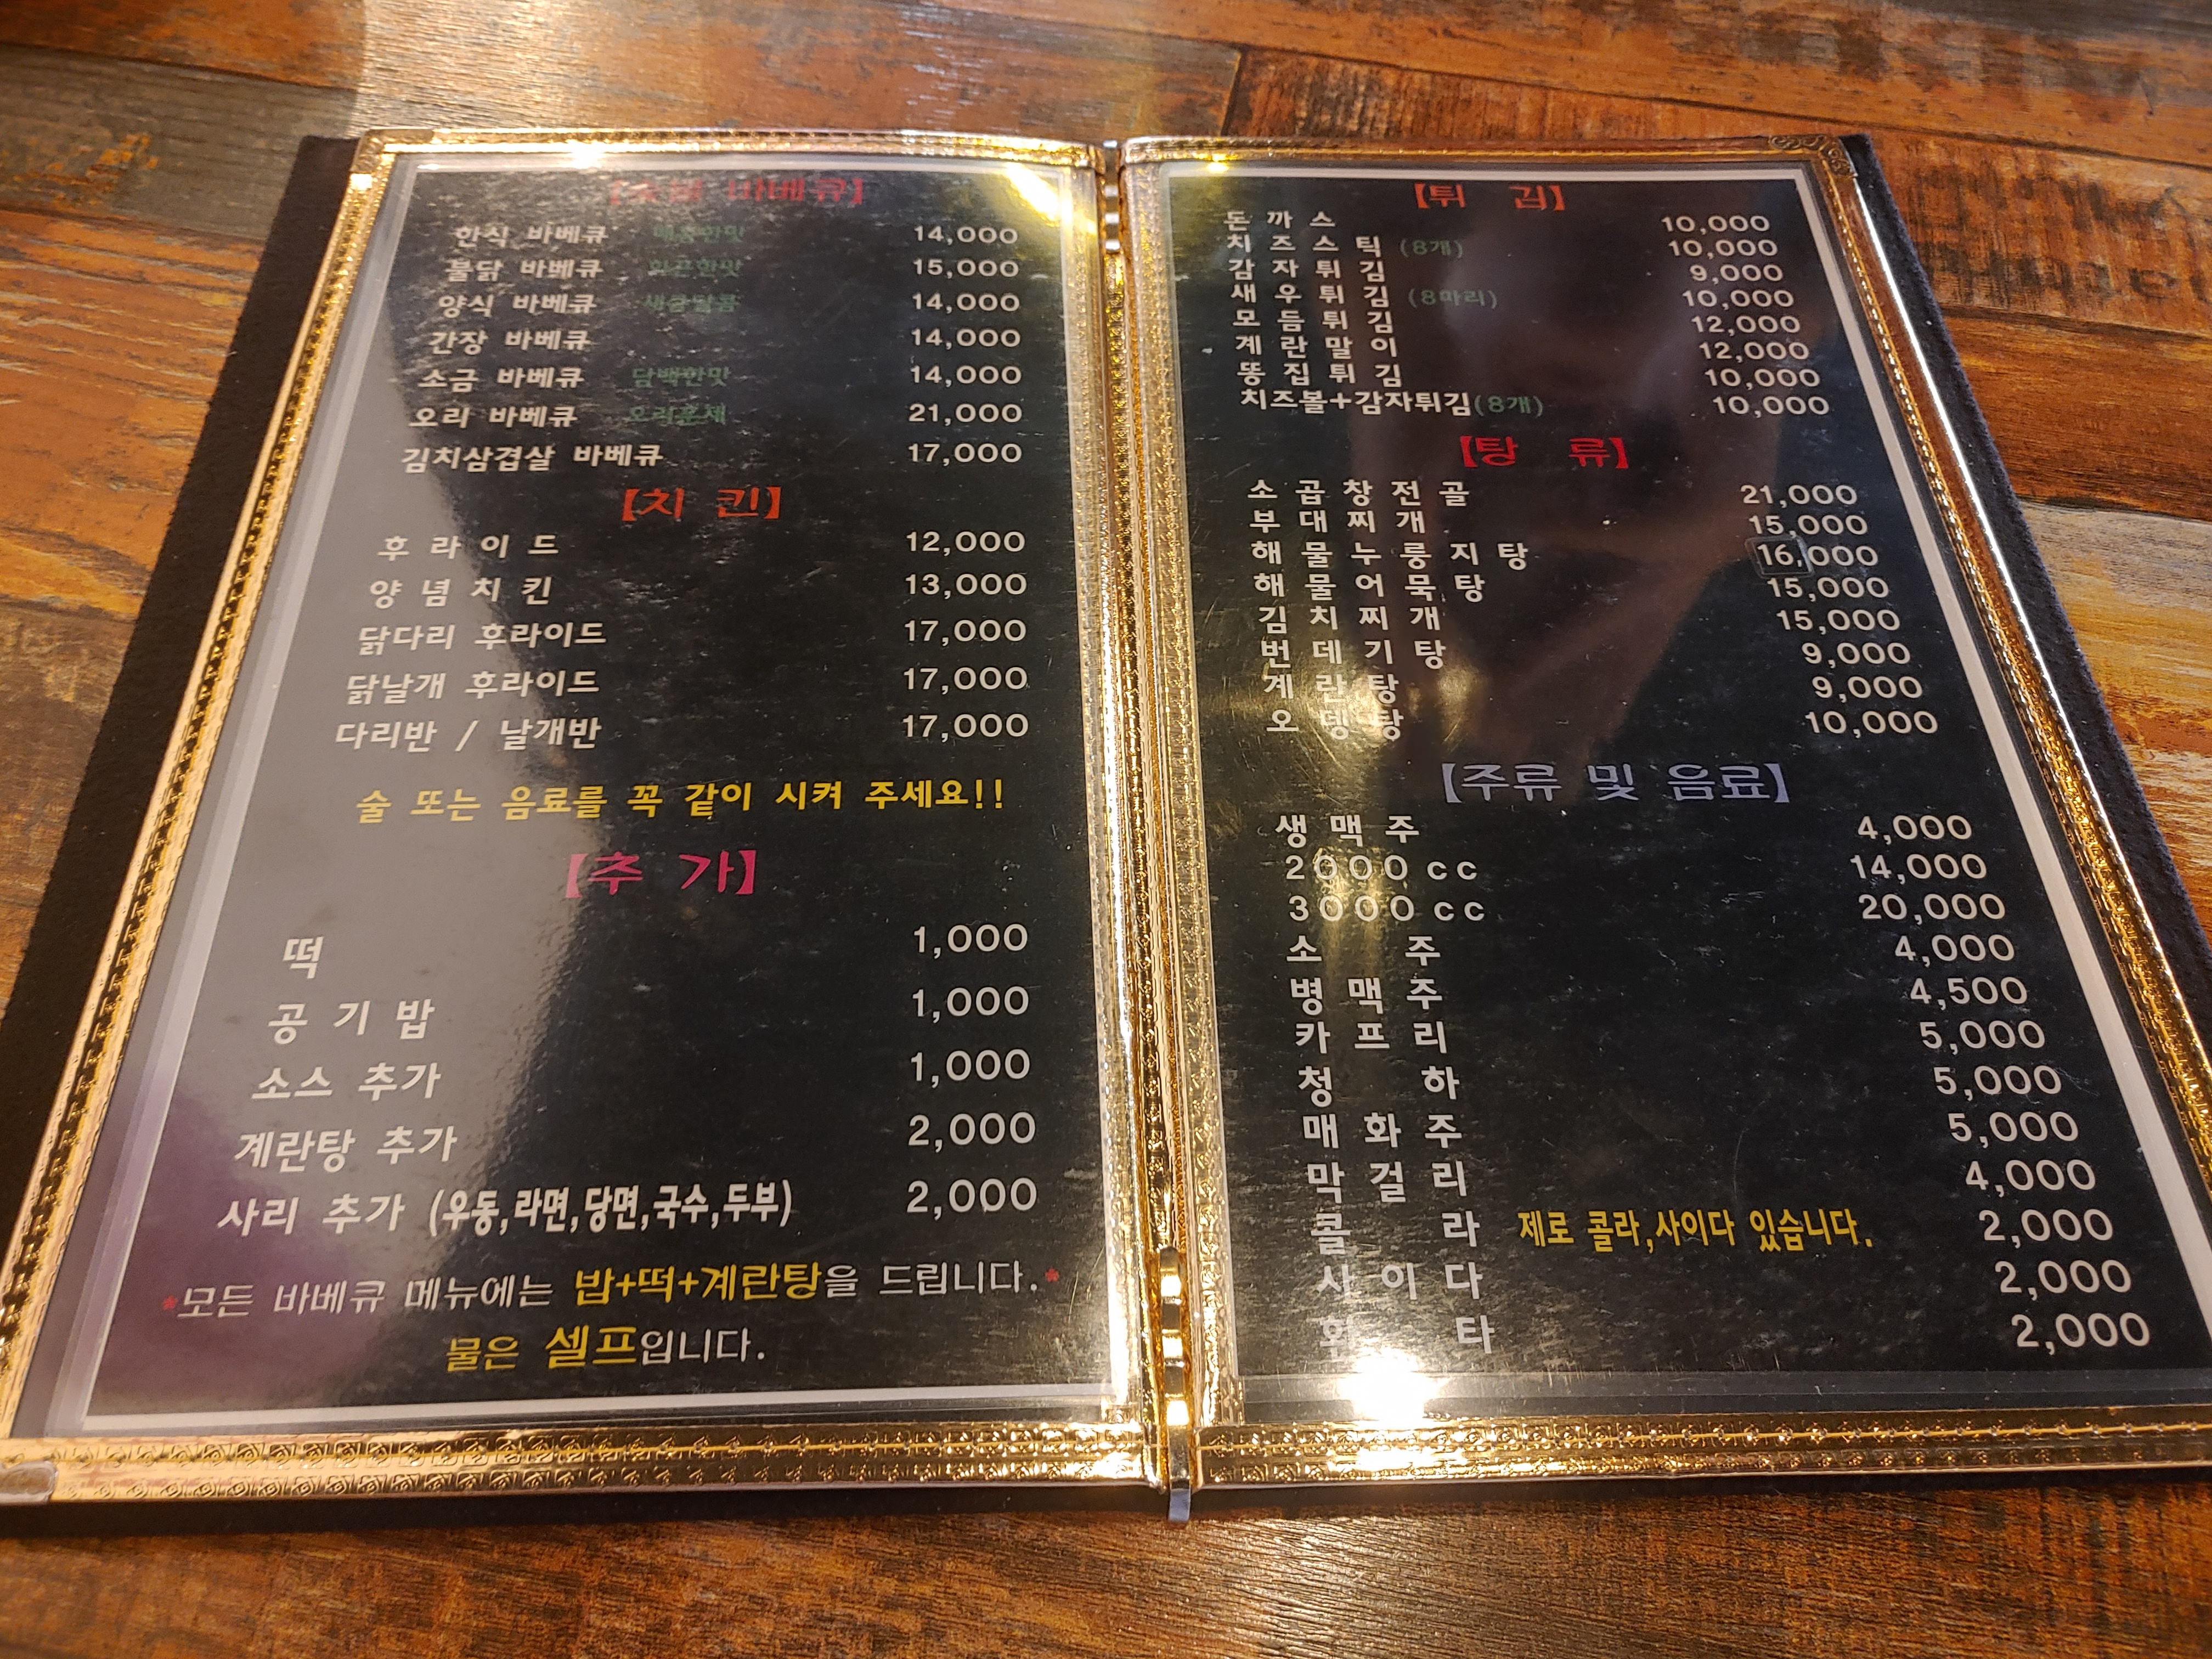 【숯불 바베큐】
한식 바베큐 매콤한맛 14,000
불닭 바베큐 화끈한맛 15,000
양식 바베큐 새콤달콤 14,000
간장 바베큐 14,000
소금 바베큐 담백한맛 14,000
오리 바베큐 오리훈제 21,000
김치삼겹살 바베큐 17,000
【치 킨】
후 라 이 드 12,000
양 념 치 킨 13,000
닭다리 후라이드 17,000
닭날개 후라이드 17,000
다리반 / 날개반 17,000
술 또는 음료를 꼭 같이 시켜 주세요!!
【추 가】
떡 1,000
공 기 밥 1,000
소스 추가 1,000
계란탕 추가 2,000
사리 추가 (우동,라면,당면,국수,두부) 2,000
*모든 바베큐 메뉴에는 밥+떡+계란탕을 드립니다.*
물은 셀프입니다.
【튀 김】
돈 까 스 10,000
치 즈 스 틱 (8개) 10,000
감 자 튀 김 9,000
새 우 튀 김 (8마리) 10,000
모 듬 튀 김 12,000
계 란 말 이 12,000
똥 집 튀 김 10,000
치즈볼+감자튀김(8개) 10,000
【탕 류】
소 곱 창 전 골 21,000
부 대 찌 개 15,000
해 물 누 룽 지 탕 16,000
해 물 어 묵 탕 15,000
김 치 찌 개 15,000
번 데 기 탕 9,000
계 란 탕 9,000
오 뎅 탕 10,000
【주류 및 음료】
생 맥 주 4,000
2000cc 14,000
3000cc 20,000
소 주 4,000
병 맥 주 4,500
카 프 리 5,000
청 하 5,000
매 화 주 5,000
막 걸 리 4,000
콜 라 제로 콜라,사이다 있습니다. 2,000
사 이 다 2,000
환 타 2,000